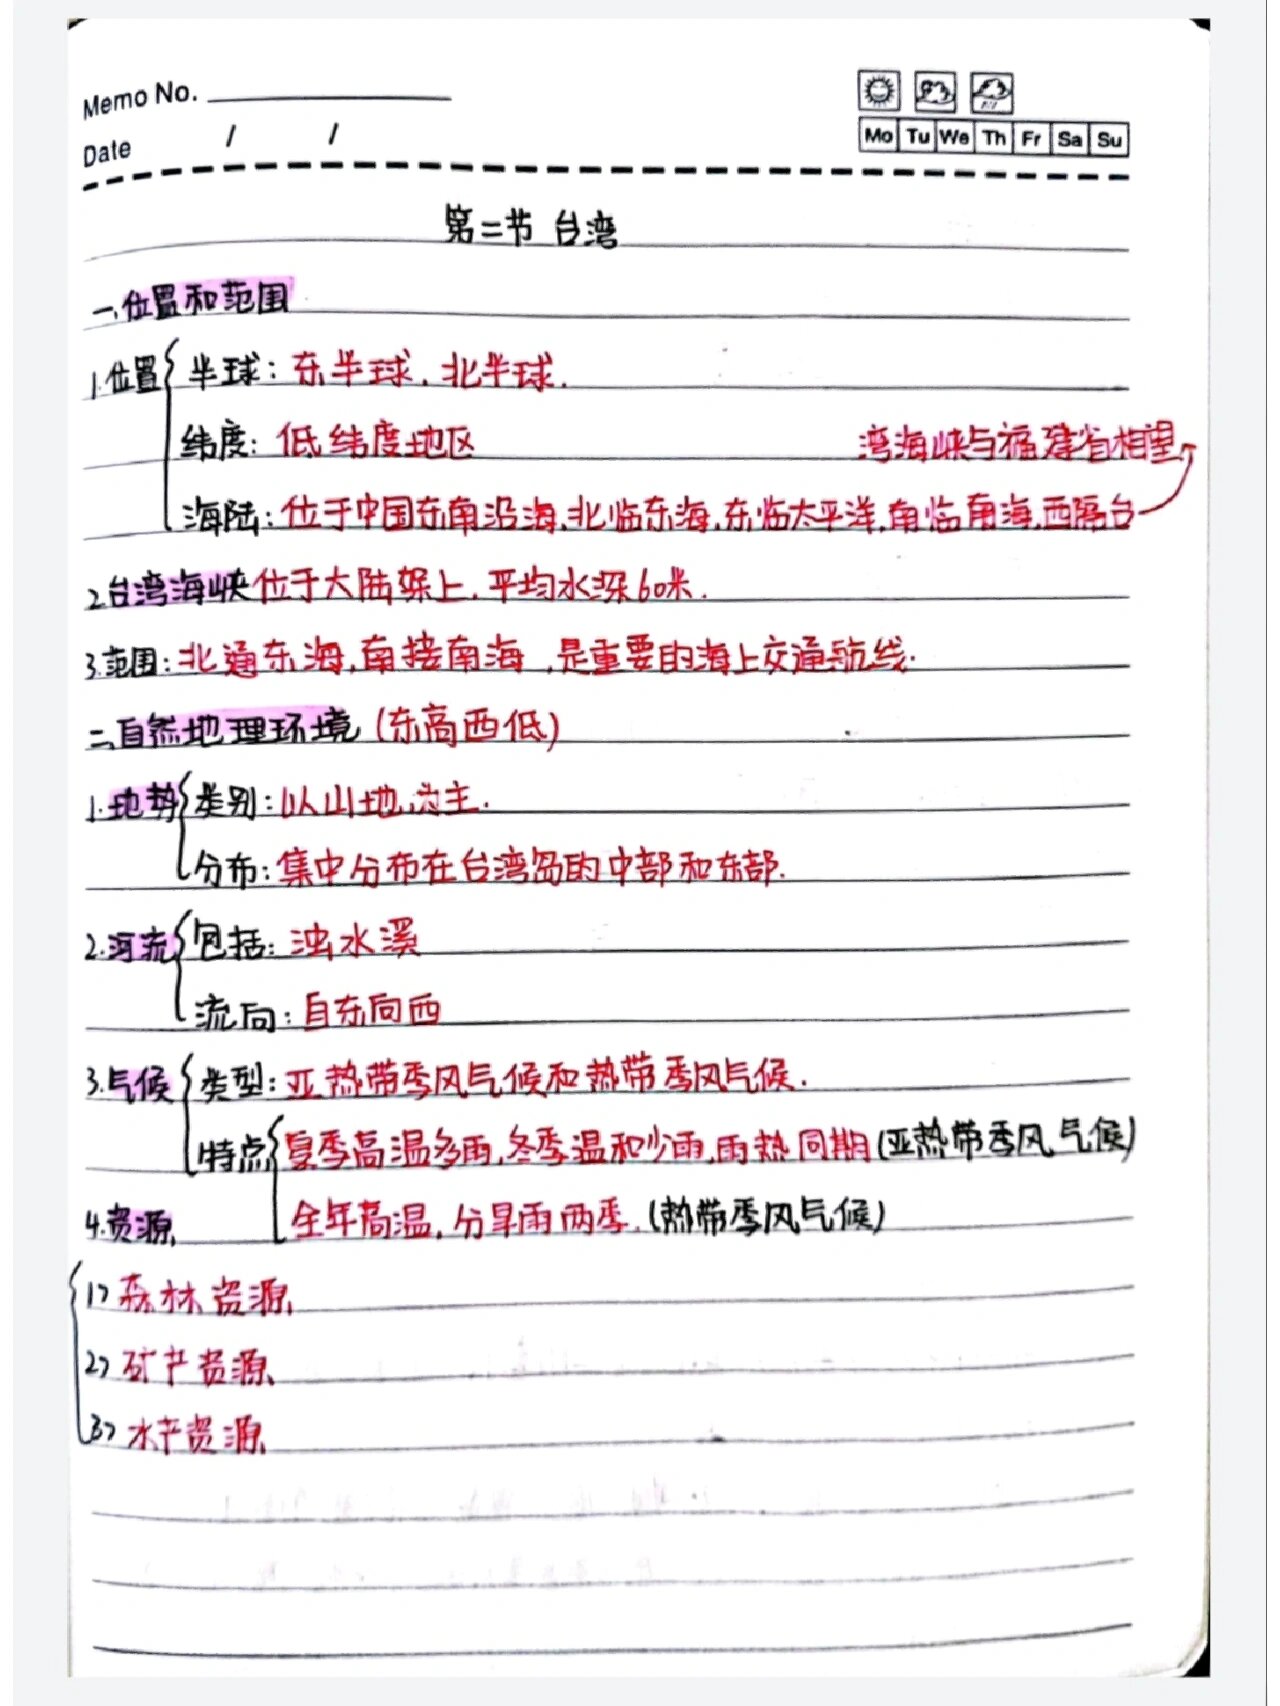 Memo No.
Date / /
Mo Tu We Th Fr Sa Su
第二节 台湾
一、位置和范围
1.位置 半球：东半球，北半球.
纬度：低纬度地区
湾海峡与福建省相望
海陆：位于中国东南沿海,北临东海,东临太平洋,南临南海,西隔台
2.台湾海峡位于大陆架上,平均水深60米.
3.范围：北通东海,南接南海,是重要的海上交通航线.
二、自然地理环境(东高西低)
1.地势 类别：以山地为主.
分布：集中分布在台湾岛的中部和东部.
2.河流 包括：浊水溪
流向：自东向西
3.气候 类型：亚热带季风气候和热带季风气候.
特点 夏季高温多雨,冬季温和少雨,雨热同期(亚热带季风气候)
4.资源 全年高温,分旱雨两季.(热带季风气候)
1>森林资源
2>矿产资源
3>水产资源